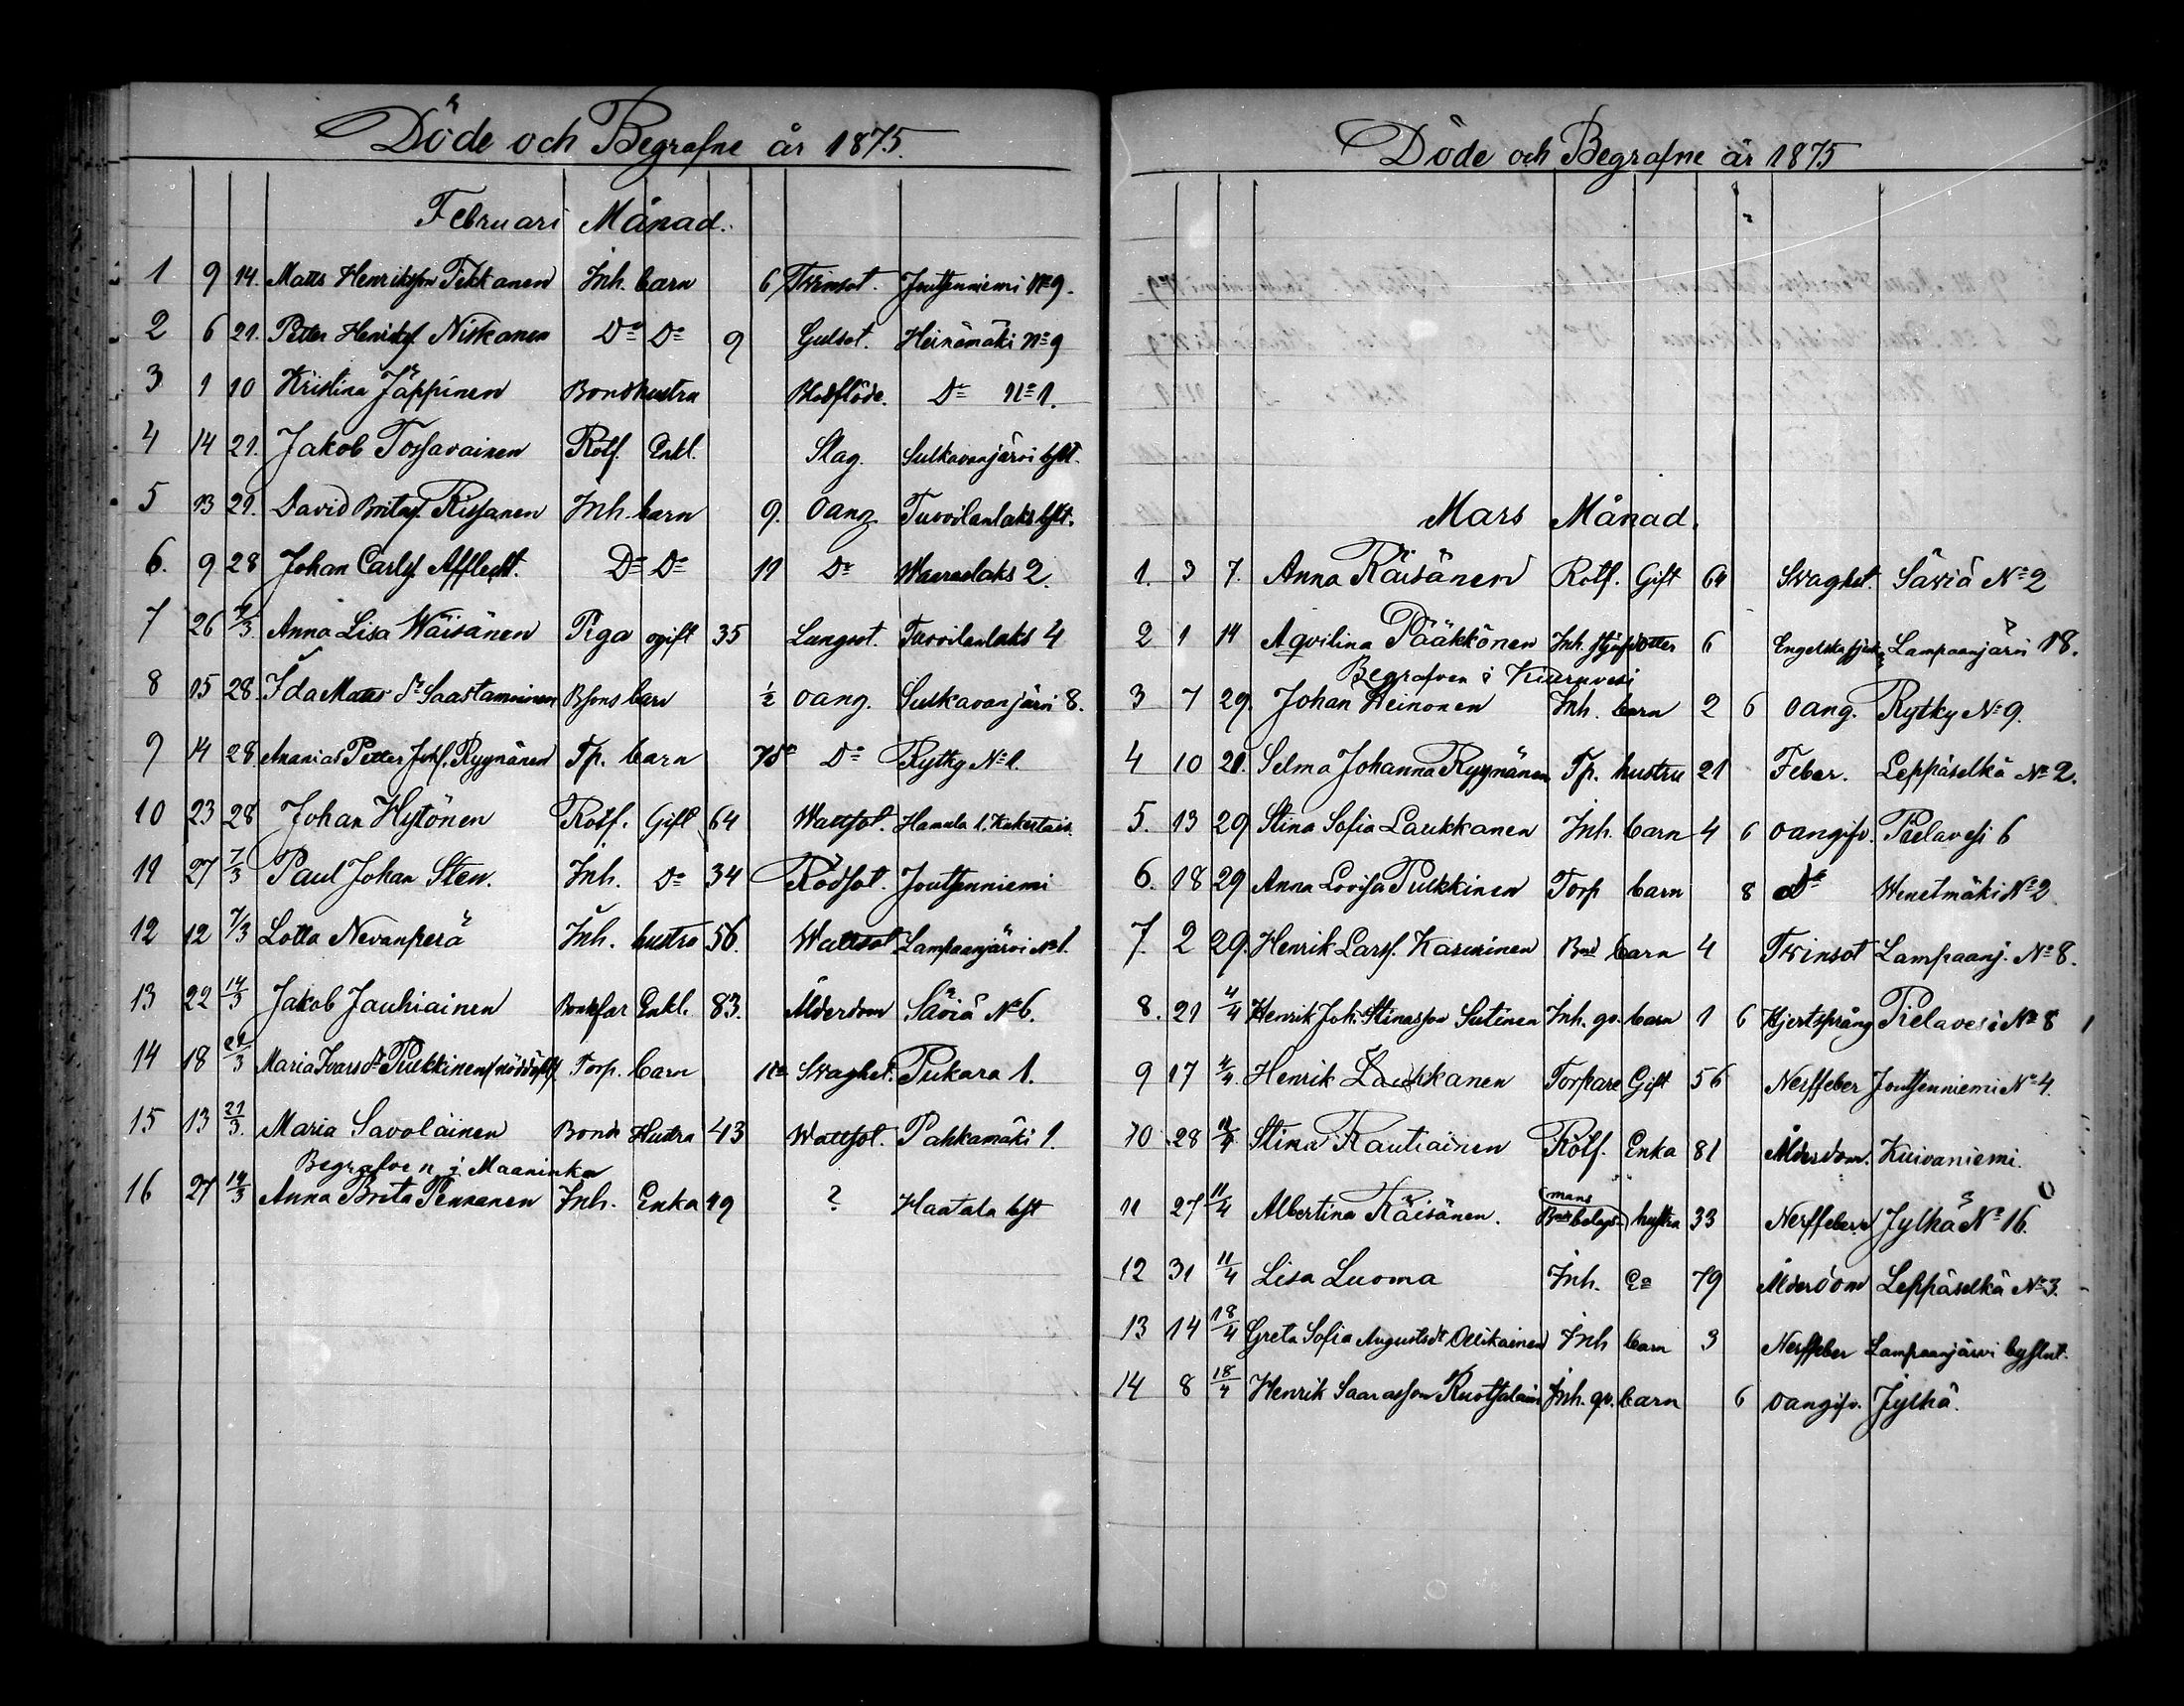 Döde och Begrafne år 1875.
Februari Månad.
1 9 14. Matts Henriksson Tikkanen Inh. barn 6 Twinsot. Joutsenniemi No 9.
2 6 21. Petter Henriksf. Niskanen Do Do 9 Gulsot. Heinämäki No 9
3 1 10 Kristina Jäppinen Bond hustru Blodflöde. Do No 1.
4 14 21. Jakob Tossavainen Rotf. Enkl. Slag. Sulkavanjärvi byst.
5 13 21. David Britasf. Rissanen Inh. barn 9. oang. Tuovilanlaks byst.
6. 9 28 Johan Carlsf. Afflecht. Do Do 11 Do Waaraslaks 2.
7 26 7/3. Anna Lisa Wäisänen Piga ogift 35 Lungsot. Tuovilanlaks 4
8 15 28. Ida Matts dr Saastamoinen Bsons barn 1/2 oang. Sulkavanjärvi 8.
9 14 28. Ananias Petter Johsf. Ryynänen Tp. barn Do Rytky No 1.
10 23 28 Johan Hytönen Rotf. Gift 64 Wattsot. Hamula 1.
11 27 7/3 Paul Johan Sten. Inh. Do 34 Rödsot. Joutsenniemi
12 12 7/3 Lotta Nevanperä Inh. hustru 56. Wattsot Lampaanjärvi No 1.
13 22 14/3 Jakob Jauhiainen Bondfar Enkl. 83. Ålderdom Säviä No 6.
14 18 21/3 Maria Ivarsdr Pulkkinen (nöddöpt) Torp. barn Svaghet. Pukara 1.
15 13 21/3. Maria Savolainen Bond Hustru 43 Wattsot. Pahkamäki 1.
Begrafven i Maaninka
16 27 14/3 Anna Brita Pennanen Inh. Enka 49 ? Haatala byst
Döde och Begrafne år 1875
Mars Månad.
1. 3 7. Anna Räisänen Rotf. Gift 64 Svaghet. Säviä No 2
2 1 14 Aqvilina Pääkkönen Inh. styfdotter 6 Engelska sjuk. Lampaanjärvi 18.
Begrafven i Kiuruvesi
3 7 29. Johan Heinonen Inh. barn 2 6 oang. Rytky No 9.
4 10 21. Selma Johanna Ryynänen Tp. hustru 21 Feber. Leppäselkä No 2.
5. 13 29 Stina Sofia Laukkanen Inh. barn 4 6 oangifv. Pielavesi 6
6. 18 29 Anna Lovisa Pulkkinen Torp barn 8 do Wenetmäki No 2
7. 2 29. Henrik Larsf. Kasurinen Bond barn 4 Twinsot Lampaanj. No 8.
8. 21 4/4 Henrik Joh. Stinasson Sutinen Inh. qv. barn 1 6 Hjertsprång Pielavesi No 8
9 17 4/4 Henrik Laukkanen Torpare Gift 56 Nerffeber Joutsenniemi No 4.
10 28 11/4 Stina Rautiainen Rotf. Enka 81 Ålderdom. Kuivaniemi.
11 27 11/4 Albertina Räisänen. Bondebolags mans hustru 33 Nerffeber Jylhä No 16.
12 31 11/4 Lisa Luoma Inh. Ea 79 Ålderdom Leppäselkä No 3.
13 14 18/4 Greta Sofia Augustsdt Ollikainen Inh barn 3 Nerffeber Lampaanjärvi byslut.
14 8 18/4 Henrik Saarasson Ruotsalain Inh. qv. barn 6 oangifv. Jylhä.